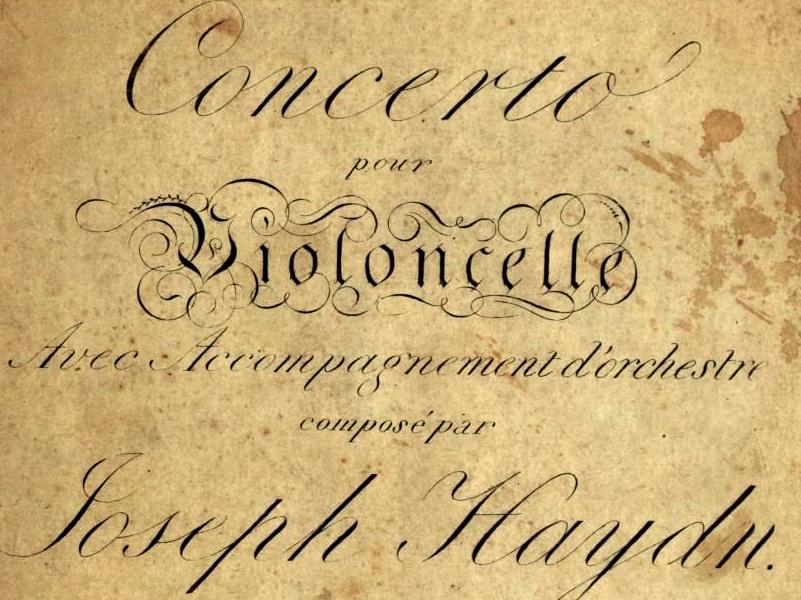 Concerto
pour
Violoncelle
Avec Accompagnement d'orchestre
composé par
Joseph Haydn.